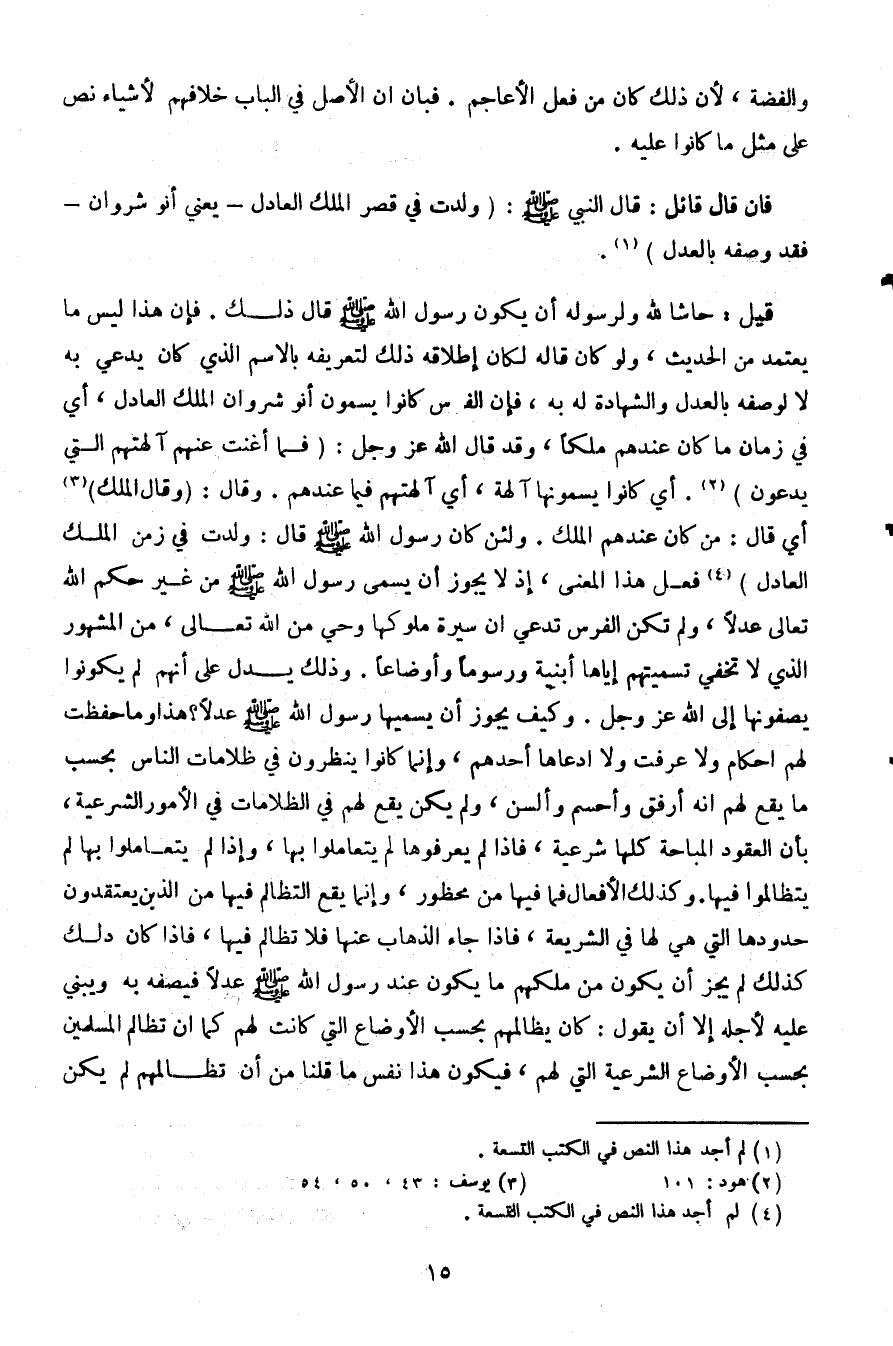 والفضة ، لأن ذلك كان من فعل الأعاجم . فبان ان الأصل في الباب خلافهم لأشياء نص
على مثل ما كانوا عليه .
فان قال قائل : قال النبي ﷺ : ( ولدت في قصر الملك العادل – يعني أنو شروان –
فقد وصفه بالعدل ) (١) .
قيل : حاشا لله ولرسوله أن يكون رسول الله ﷺ قال ذلك . فإن هذا ليس ما
يعتمد من الحديث ، ولو كان قاله لكان إطلاقه ذلك لتعريفه بالاسم الذي كان يدعي به
لا لوصفه بالعدل والشهادة له به ، فإن الفرس كانوا يسمون أنو شروان الملك العادل ، أي
في زمان ما كان عندهم ملكاً ، وقد قال الله عز وجل : ( فما أغنت عنهم آلهتهم التي
يدعون ) (٢) . أي كانوا يسمونها آلهة ، أي آلهتهم فيما عندهم . وقال : (وقال الملك)(٣)
أي قال : من كان عندهم الملك . ولئن كان رسول الله ﷺ قال : ولدت في زمن الملك
العادل ) (٤) فعل هذا المعنى ، إذ لا يجوز أن يسمى رسول الله ﷺ من غير حكم الله
تعالى عدلاً ، ولم تكن الفرس تدعي ان سيرة ملوكها وحي من الله تعالى ، من المشهور
الذي لا تخفي تسميتهم إياها أبنية ورسوماً وأوضاعاً . وذلك يدل على أنهم لم يكونوا
يصفونها إلى الله عز وجل . وكيف يجوز أن يسميها رسول الله ﷺ عدلاً؟ هذا وما حفظت
لهم احكام ولا عرفت ولا ادعاها أحدهم ، وإنما كانوا ينظرون في ظلامات الناس بحسب
ما يقع لهم انه أرفق وأحسم وألسن ، ولم يكن يقع لهم في الظلامات في الأمور الشرعية ،
بأن العقود المباحة كلها شرعية ، فاذا لم يعرفوها لم يتعاملوا بها ، وإذا لم يتعاملوا بها لم
يتظالموا فيها. وكذلك الأفعال فما فيها من محظور ، وإنما يقع التظالم فيها من الذين يعتقدون
حدودها التي هي لها في الشريعة ، فاذا جاء الذهاب عنها فلا تظالم فيها ، فاذا كان دلك
كذلك لم يجز أن يكون من ملكهم ما يكون عند رسول الله ﷺ عدلاً فيصفه به ويبني
عليه لأجله إلا أن يقول : كان يظالمهم بحسب الأوضاع التي كانت لهم كما ان تظالم المسلمين
بحسب الأوضاع الشرعية التي لهم ، فيكون هذا نفس ما قلنا من أن تظالمهم لم يكن
(١) لم أجد هذا النص في الكتب التسعة .
(٢) هود : ١٠١ (٣) يوسف : ٤٣ ، ٥٠ ، ٥٤
(٤) لم أجد هذا النص في الكتب التسعة .
١٥